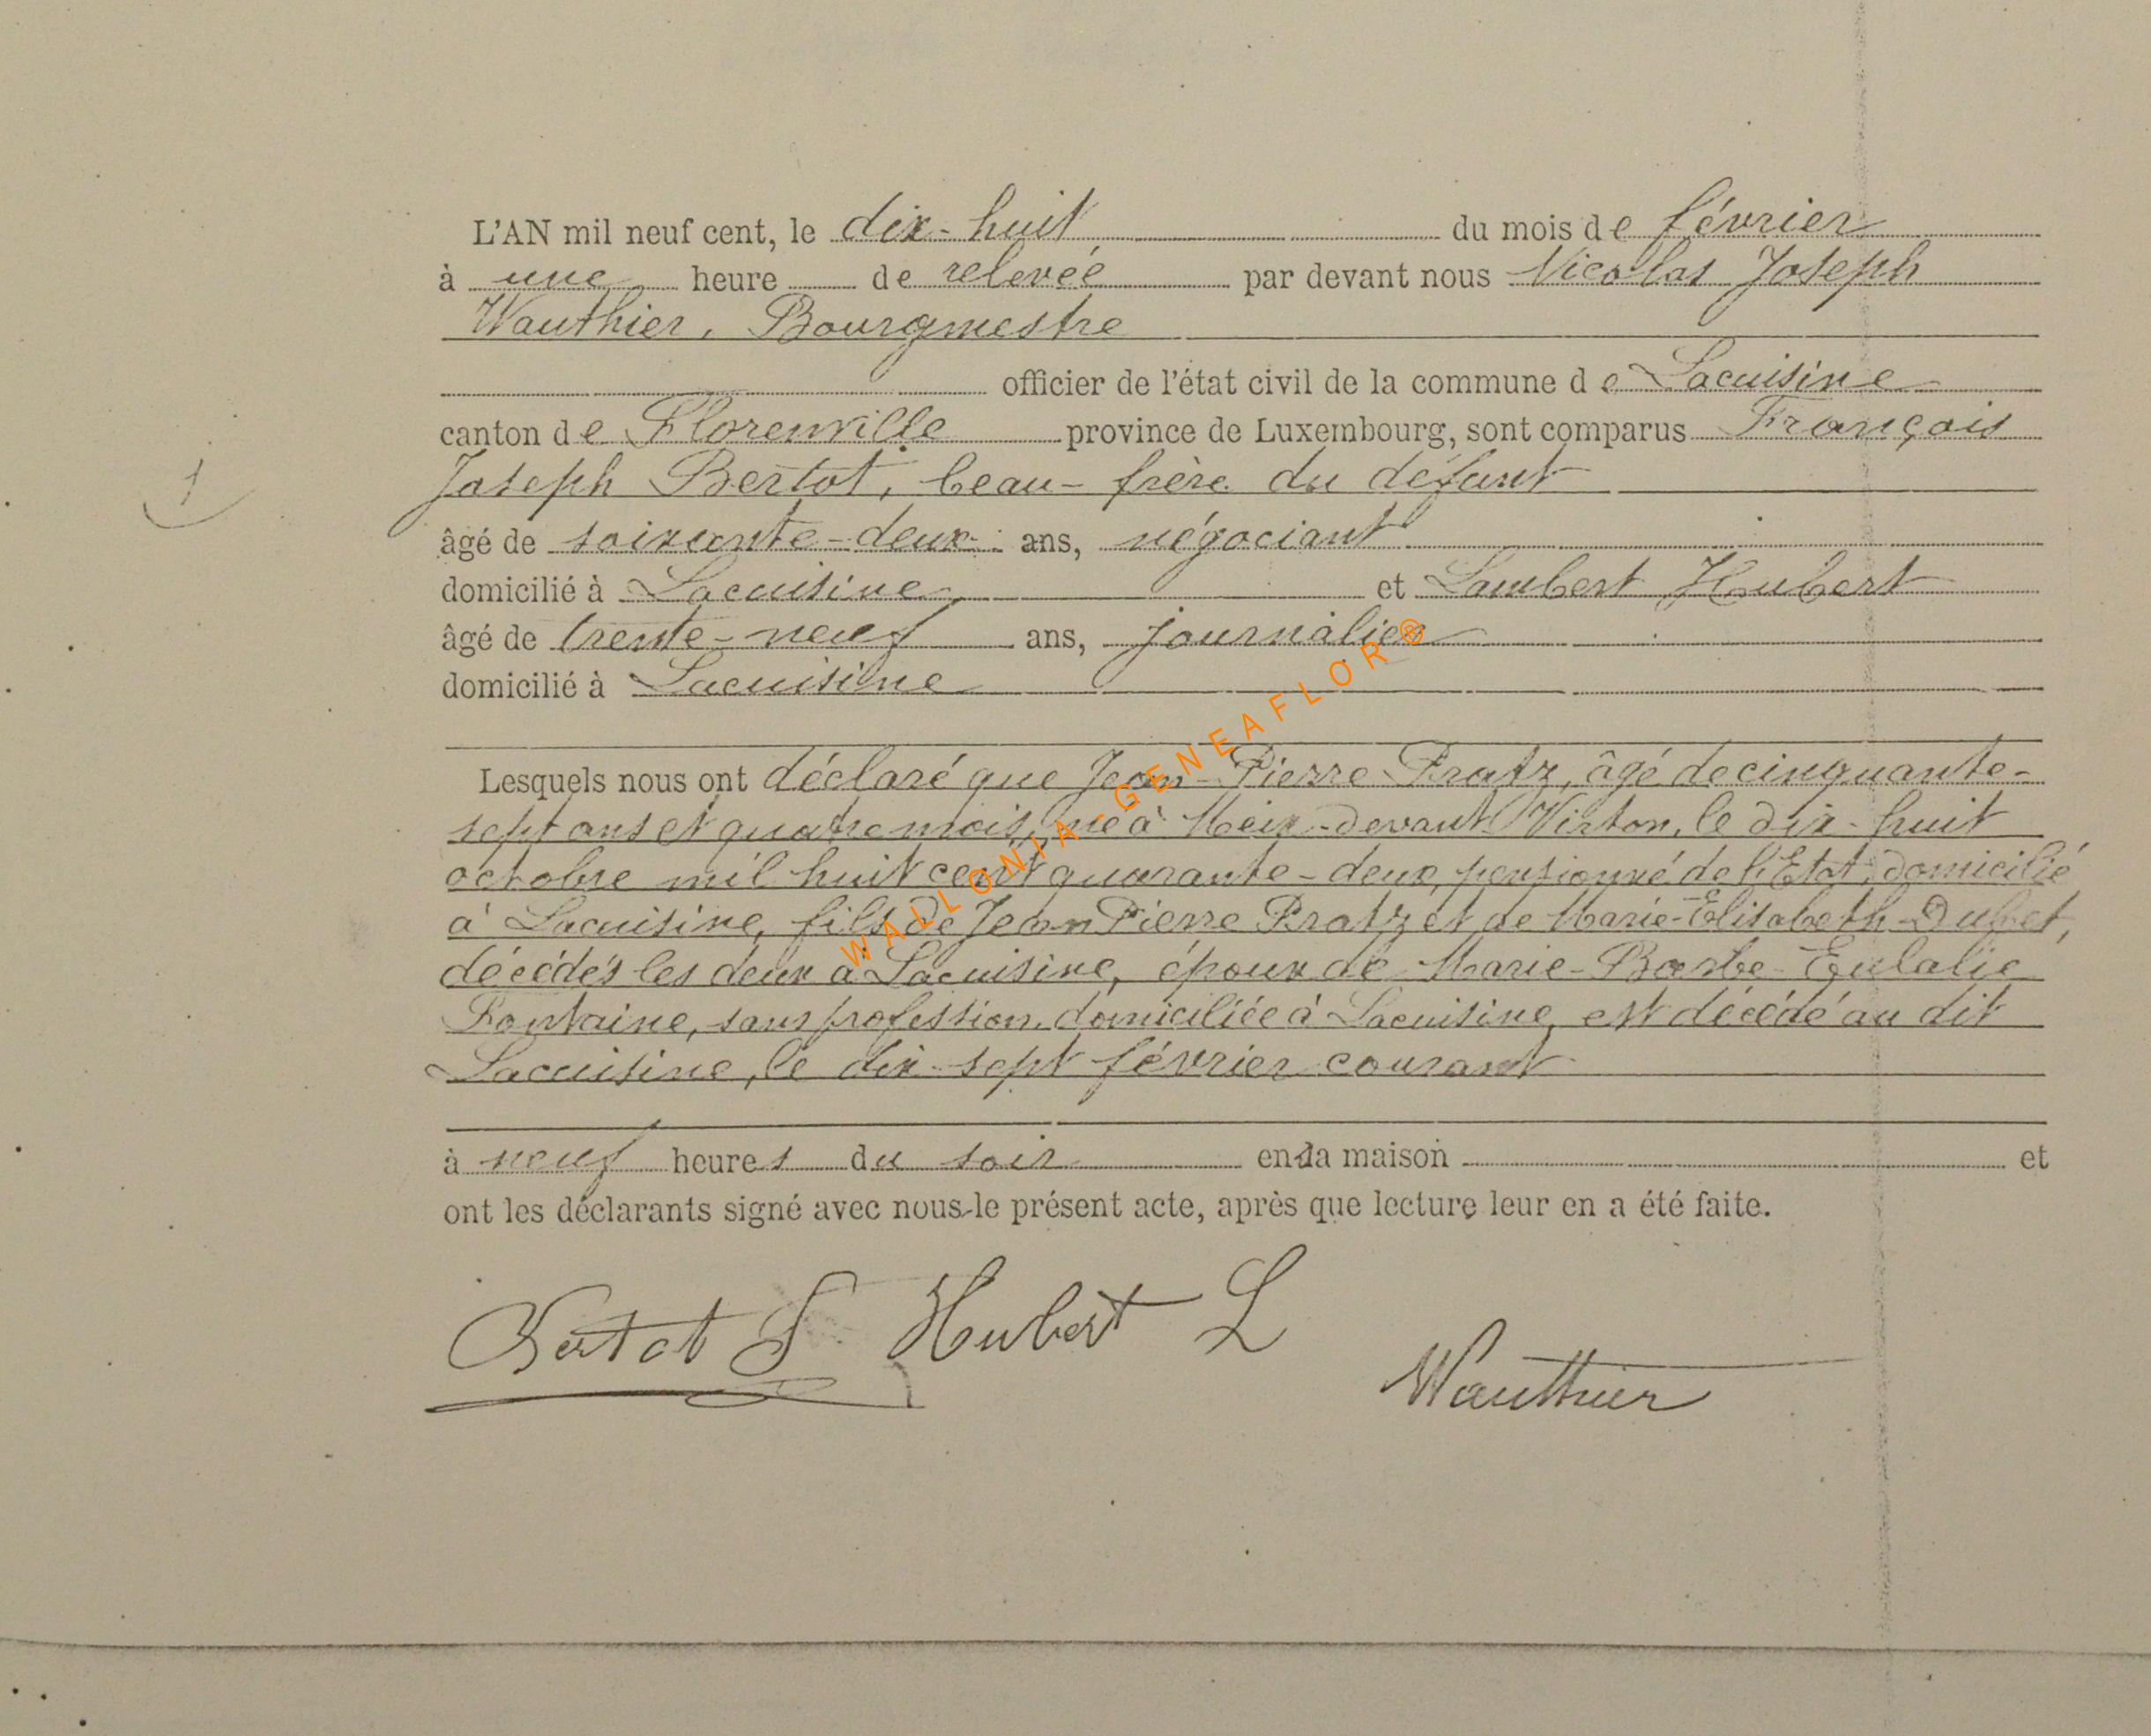 L'AN mil neuf cent, le dix-huit du mois de février
à une heure de relevée par devant nous Nicolas Joseph
Wauthier, Bourgmestre
officier de l'état civil de la commune de Lacuisine
canton de Florenville province de Luxembourg, sont comparus François
1
Joseph Bertot, beau-frère du défunt
âgé de soixante-deux ans, négociant
domicilié à Lacuisine et Lambert Hubert
âgé de trente-neuf ans, journalier
domicilié à Lacuisine
Lesquels nous ont déclaré que Jean-Pierre Pratz, âgé de cinquante-
sept ans et quatre mois, né à Meix-devant Virton, le dix-huit
octobre mil huit cent quarante-deux, pensionné de l'Etat, domicilié
à Lacuisine, fils de Jean Pierre Pratz et de Marie-Elisabeth
décédés les deux à Lacuisine, époux de Marie-Barbe-Eulalie
Fontaine, sans profession, domiciliée à Lacuisine, est décédé au dit
Lacuisine, le dix-sept février courant
à neuf heures du soir en sa maison et
ont les déclarants signé avec nous le présent acte, après que lecture leur en a été faite.
Bertot F Hubert L
Wauthier
WALLONIA-GENEAFLOR®